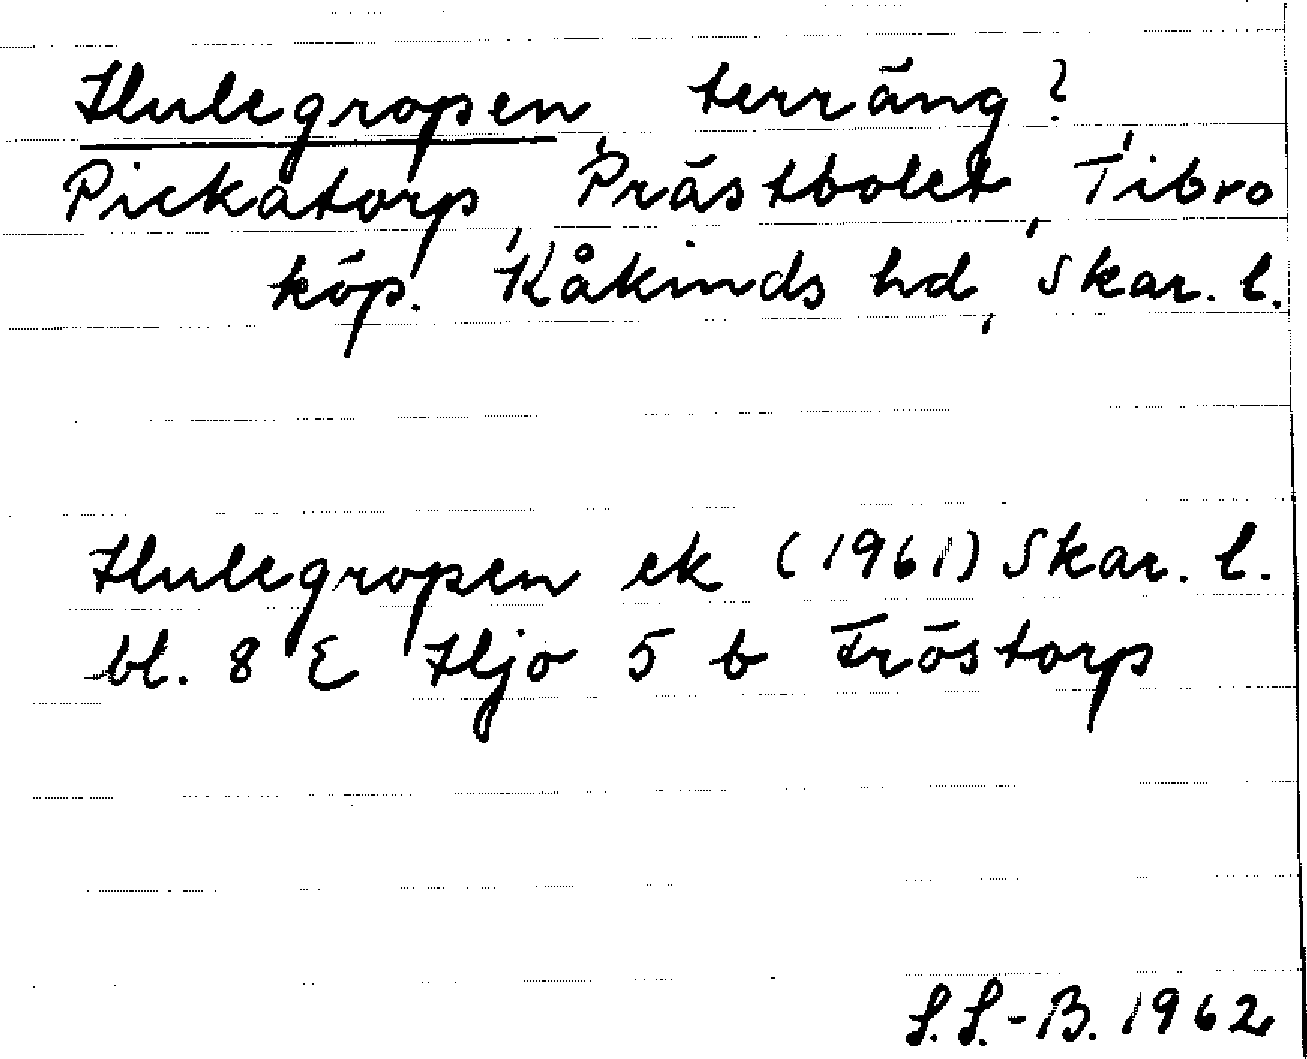 Hulegropen, terräng?
Pickatorp, Prästbolet, Tibro
köp. Kåkinds hd, Skar. l.
Hulegropen ek (1961) Skar. l.
bl. 8 E Hjo 5 b Fröstorp
S.S.-B. 1962